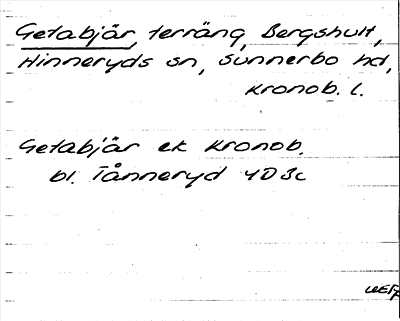 Getabjär, terräng, Bergshult,
Hinneryds sn, Sunnerbo hd,
Kronob. l.
Getabjär ek Kronob.
bl. Tånneryd 4D3c